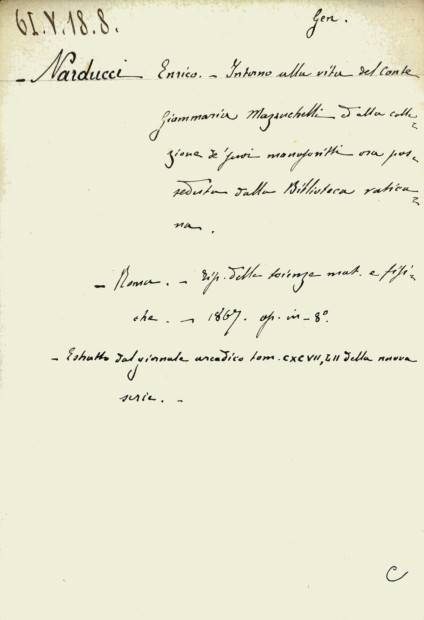 61.V.18.8.
Gen.
- Narducci Enrico. - Intorno alla vita del Conte
Giammaria Mazzuchelli ed alla colle-
zione de' suoi manoscritti ora pos-
seduta dalla Biblioteca vatica-
na.
- Roma. - tip. delle scienze mat. e fisi-
che. - 1867. op. in-8°.
- Estratto dal giornale arcadico tom. CXCVII, LII della nuova
serie. -
C